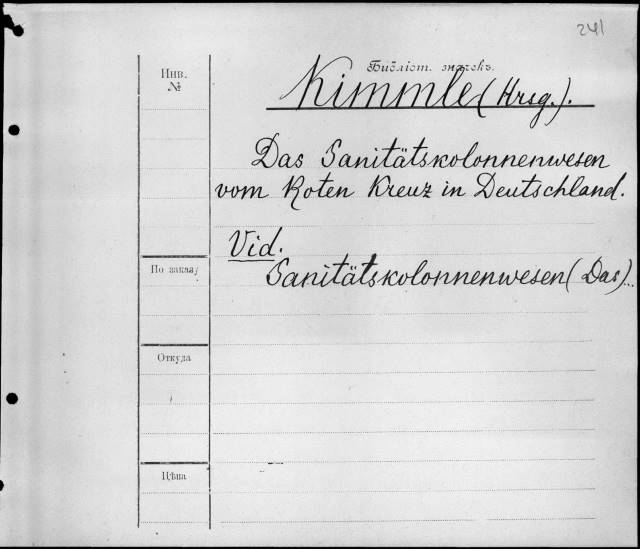 241
Инв.
№
Библіот. значекъ.
Kimmle (Hrsg.).
Das Sanitätskolonnenwesen
vom Roten Kreuz in Deutschland.
Vid.
По заказу
Sanitätskolonnenwesen (Das)...
Откуда
Цѣна